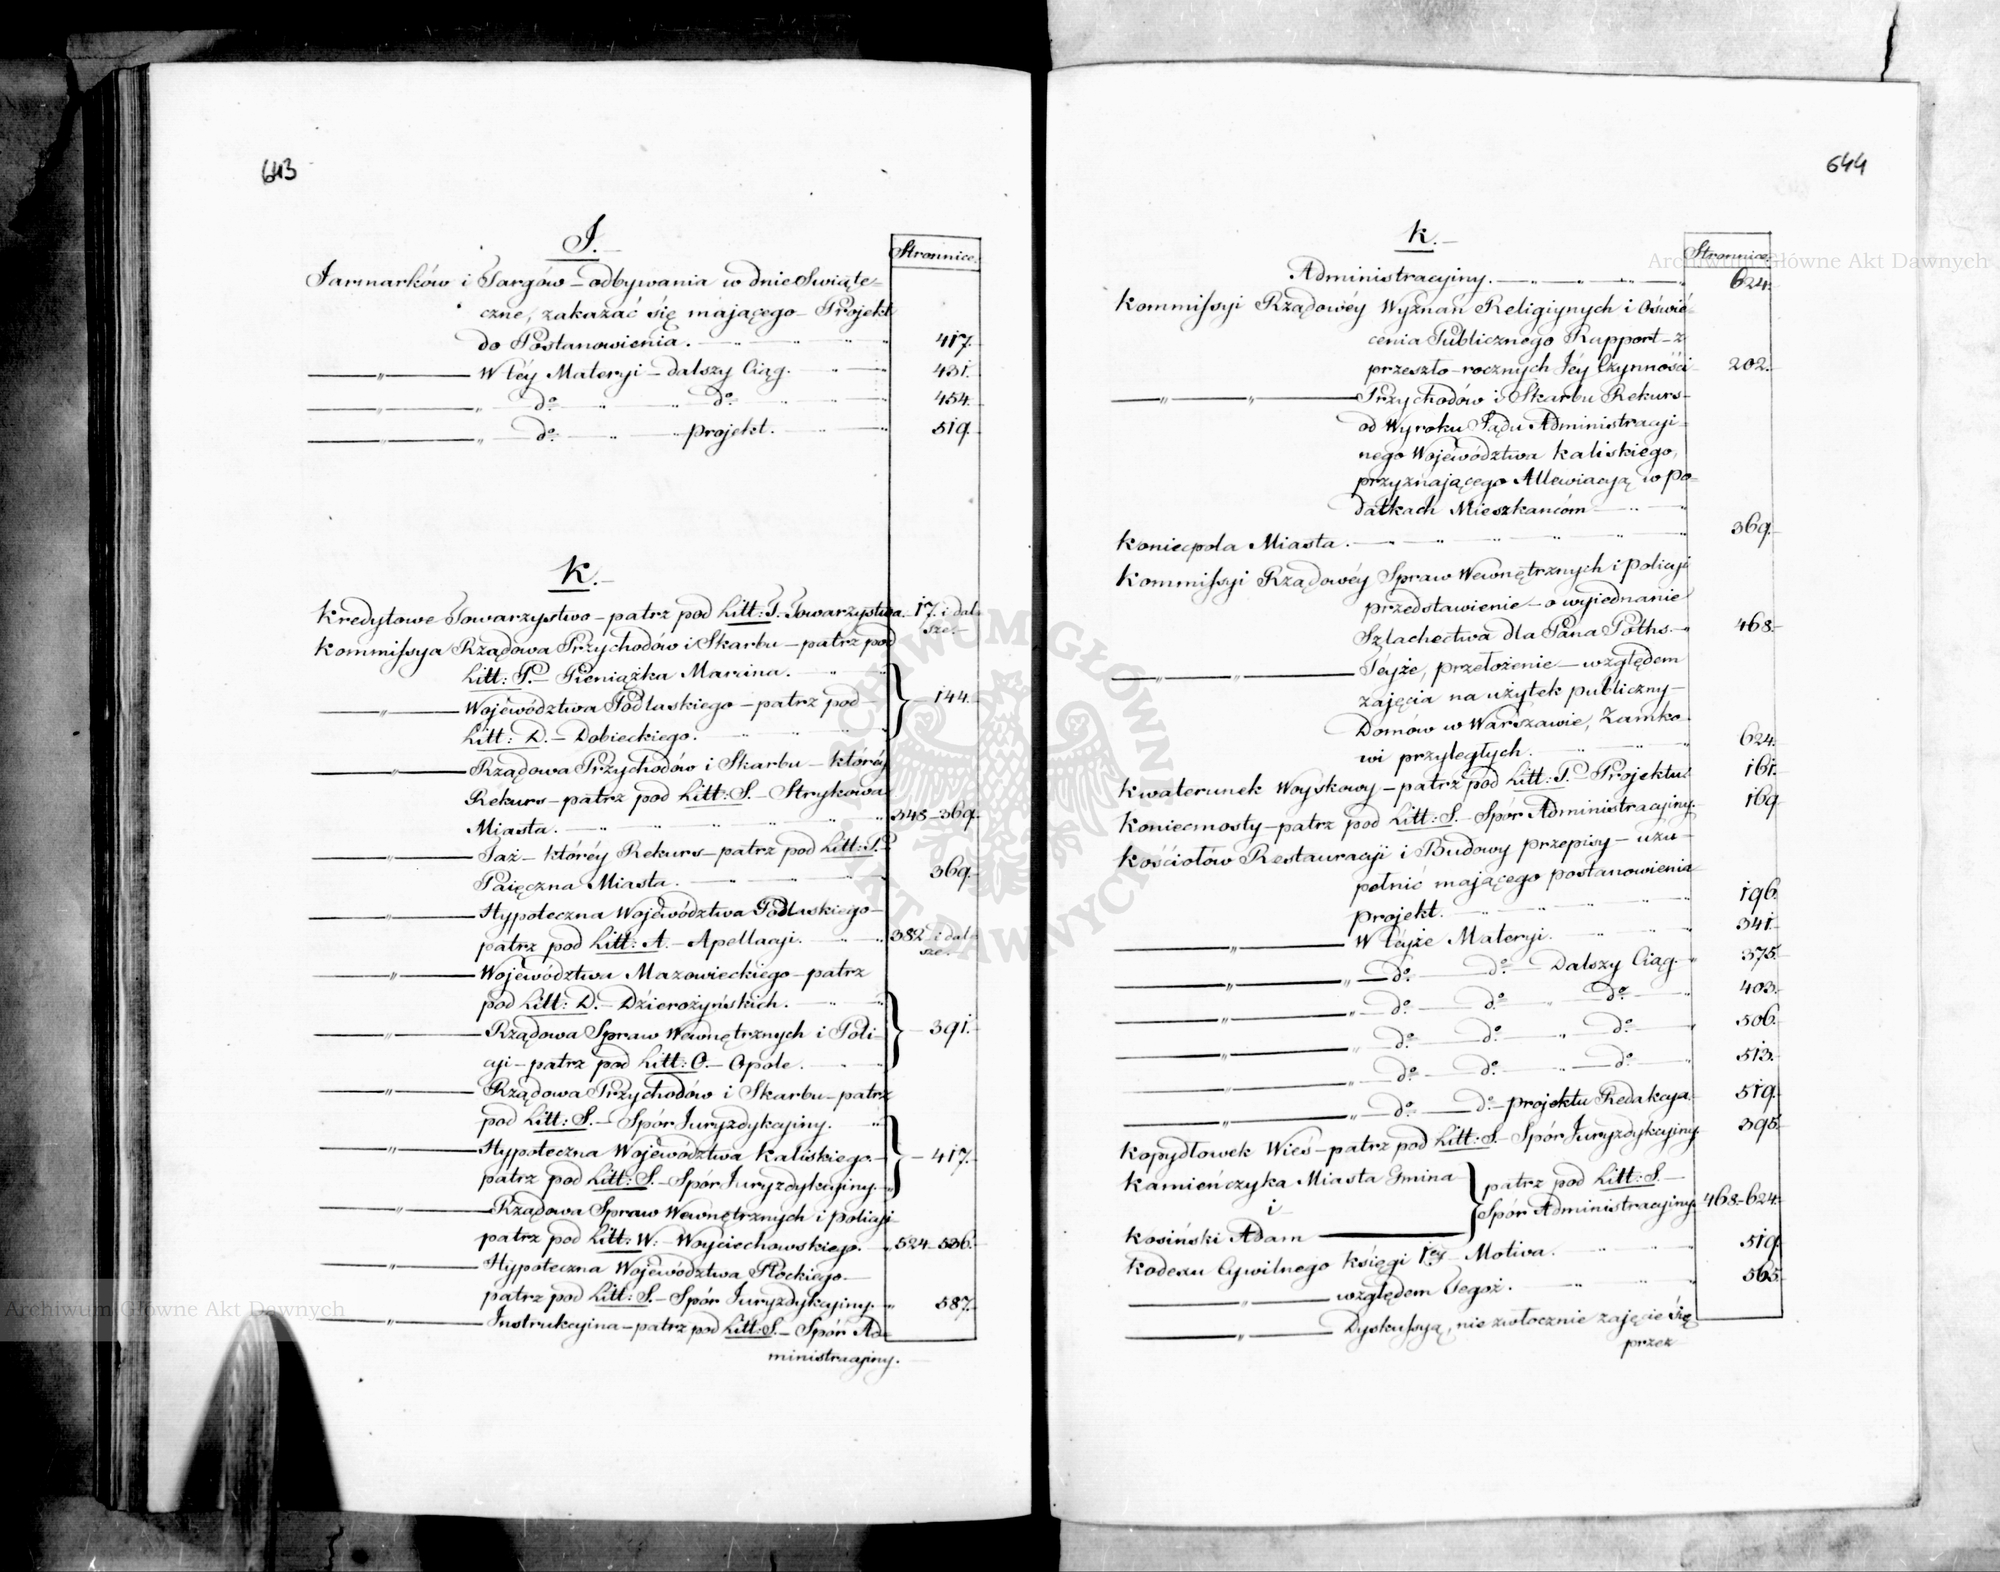 643
J.
Stronnice.
Jarmarków i Targów – odbywania w dnie Swiąte-
czne, zakazać się mającego – Projekt
do Postanowienia. 417.
— „ — W téy Materyi – dalszy Ciąg. 431.
— „ — „ do „ do 454.
— „ — „ do „ projekt. 519.
K.
Kredytowe Towarzystwo – patrz pod Litt: T. Towarzystwa. 17. i dal-
sze.
Kommissya Rządowa Przychodów i Skarbu – patrz pod
Litt: P. – Pieniążka Marcina.
— „ — Województwa Podlaskiego – patrz pod – 144.
Litt: D. – Dobieckiego.
— „ — Rządowa Przychodów i Skarbu – któréy
Rekurs – patrz pod Litt: S. – Strykowa
Miasta. 348–369.
— „ — Taż – któréy Rekurs – patrz pod Litt: P. –
Paięczna Miasta. 369.
— „ — Hypoteczna Województwa Podlaskiego –
patrz pod Litt: A. – Apellacyi. 382 i dal-
sze.
— „ — Województwa Mazowieckiego – patrz
pod Litt: D. – Dzierożyńskich.
— „ — Rządowa Spraw Wewnętrznych i Poli- – 391.
cyi – patrz pod Litt: O. – Opole.
— „ — Rządowa Przychodów i Skarbu – patrz
pod Litt: S. – Spór Juryzdykcyiny.
— „ — Hypoteczna Województwa Kaliskiego. – 417.
patrz pod Litt: S. – Spór Juryzdykcyiny.
— „ — Rządowa Spraw Wewnętrznych i policyi
patrz pod Litt: W. – Woyciechowskiego. 524–536.
— „ — Hypoteczna Województwa Płockiego –
patrz pod Litt: S. – Spór Juryzdykcyiny. 587.
— „ — Instrukcyina – patrz pod Litt: S. – Spór Ad-
ministracyiny.
644
K.
Stronnice.
Administracyiny. 624.
Kommissyi Rządowéy Wyznań Religiynych i Oświe-
cenia Publicznego Rapport – z
przeszło-rocznych Jéy Czynności 202.
— „ — „ — Przychodów i Skarbu Rekurs –
od Wyroku Sądu Administracyi-
nego Województwa Kaliskiego,
przyznającego Allewiacyą w po-
datkach Mieszkańcom
Koniecpola Miasta. 369.
Kommissyi Rządowéy Spraw Wewnętrznych i policyi
przedstawienie – o wyiednanie
Szlachectwa dla Pana Poths. 468.
— „ — „ — Téyże, przełożenie – względem
zajęcia na użytek publiczny –
Domów w Warszawie, Zamko-
wi przyległych. 624.
Kwaterunek Woyskowy – patrz pod Litt: P. – Projektu 161.
Koniecmosty – patrz pod Litt: S. – Spór Administracyiny. 169
Kościołów Restauracyi i Budowy przepisy – uzu-
pełnić mającego postanowienia
projekt. 196.
— „ — W téyże Materyi. 341.
— „ — „ — do — do — Dalszy Ciąg. 375.
— „ — „ — do — do „ do 403.
— „ — „ — do — do „ — do 506.
— „ — „ do do — do 513.
— „ — „ — do — do – projektu Redakcya. 519.
Kopydłowek Wieś – patrz pod Litt: S. – Spór Juryzdykcyiny. 395.
Kamieńczyka Miasta Gmina patrz pod Litt: S. –
i Spór Administracyiny. 468–624.
Kosiński Adam
Kodexu Cywilnego księgi 1éy – Motiva. 519
— „ — względem Tegoż. 565.
— „ — Dyskussyą, nie zwłocznie zajęcie się
przez
Archiwum Główne Akt Dawnych
Archiwum Główne Akt Dawnych
ARCHIWUM GŁÓWNE AKT DAWNYCH